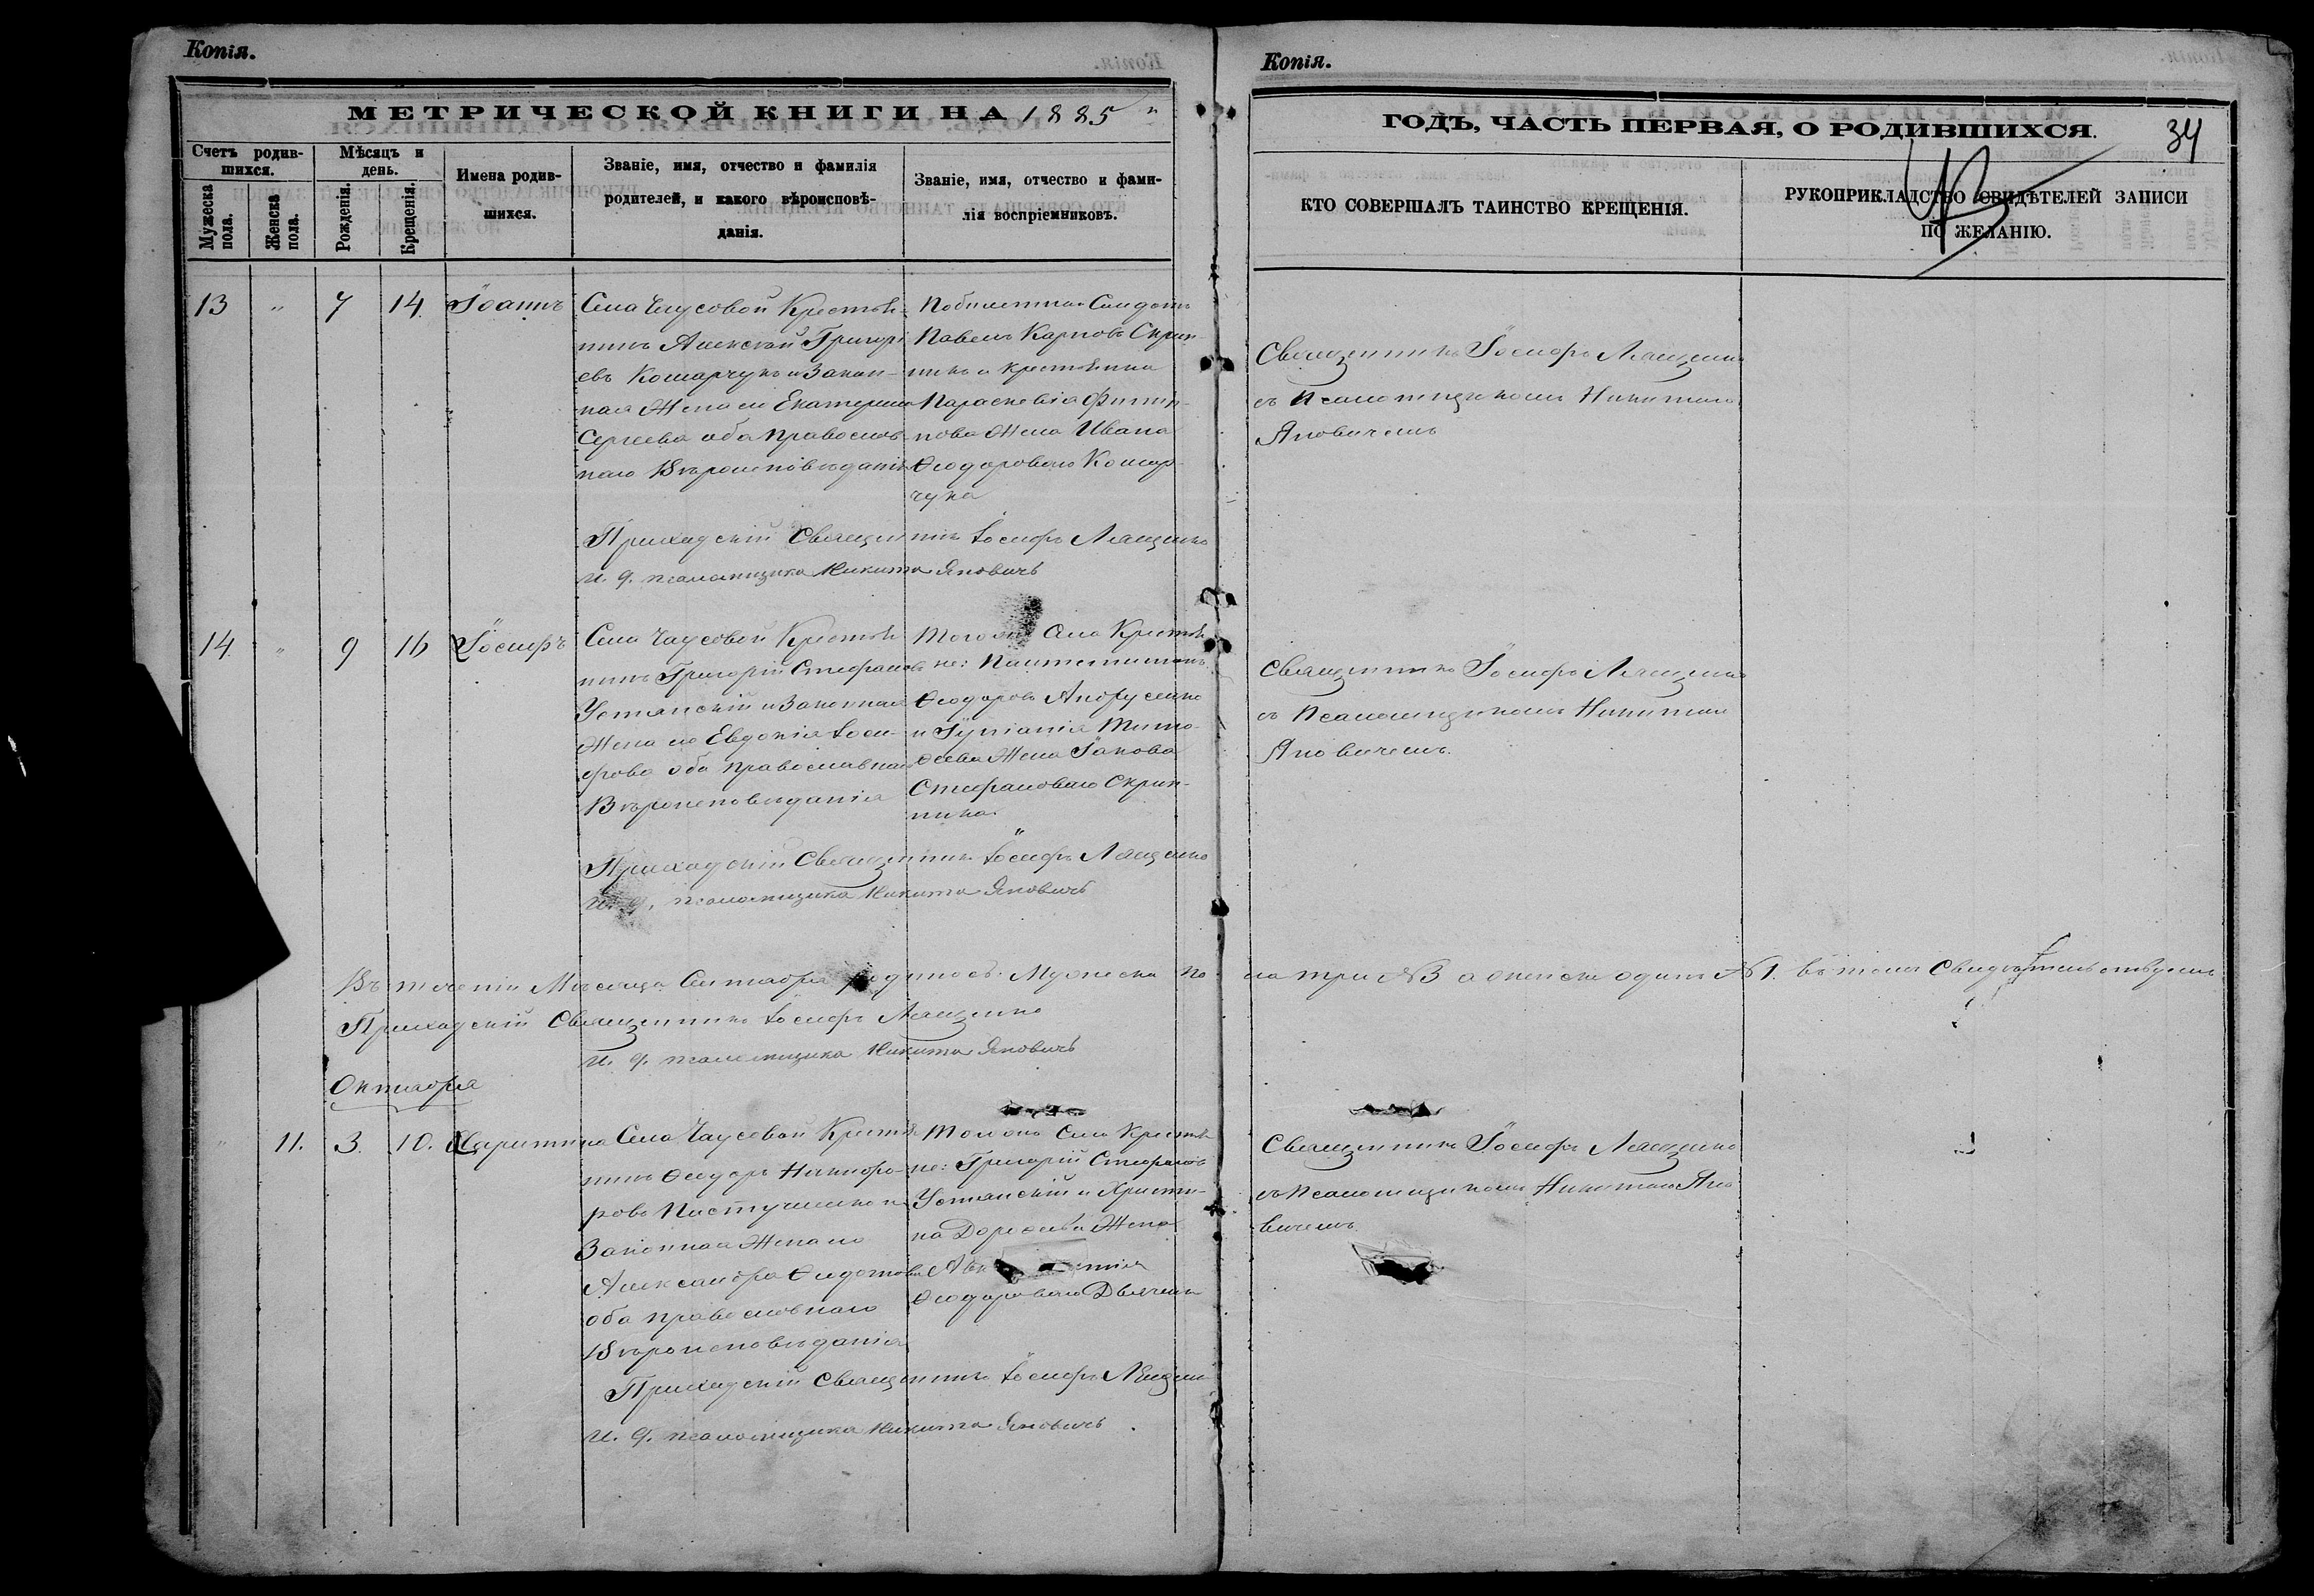 Копія.
МЕТРИЧЕСКОЙ КНИГИ НА 1885
Счетъ родив-
шихся.
Мужеска пола.
Женска пола.
Мѣсяцъ и день.
Рожденія.
Крещенія.
Имена родив-
шихся.
Званіе, имя, отчество и фамилія
родителей, и какого вѣроисповѣ-
данія.
Званіе, имя, отчество и фами-
лія воспріемниковъ.
13 " 7 14 Іоаннъ
Села Чаусовой Крестья-
нинъ Алексѣй Григорі-
евъ Кошарчукъ и Закон-
ная Жена его Екатерина
Сергеева оба Православ-
наго Вѣроисповѣданія
Павелъ Карповъ Скрип-
никъ и крестьянка
Параскевія Филип-
пова Жена Ивана
Ѳеодороваго Кошар-
чука
Приходскій Священникъ Іосифъ Лященко
и. д. псаломщика Никита Яновичъ
14 " 9 16 Іосифъ
Села Чаусовой Крестья-
нинъ Григорій Стефановъ
Устянскій и Законная
Жена его Евдокія Іоси-
фова оба Православнаго
Вѣроисповѣданія
Того же Села Крестья-
не: Пантелеимонъ
Ѳеодоровъ Андрусенко
и Іуліанія Тимо-
ѳеева Жена Іакова
Стефановаго Скрип-
ника.
Приходскій Священникъ Іосифъ Лященко
и. д. псаломщика Никита Яновичъ
Въ теченіи Мѣсяца Сентября родилось: Мужеска по-
Приходскій Священникъ Іосифъ Лященко
и. д. псаломщика Никита Яновичъ
Октября
" 11. 3. 10. Харитина
Села Чаусовой Крестья-
нинъ Ѳеодоръ Никифо-
ровъ Пастушенко и
Законная Жена его
Александра Ѳеодотова
оба православнаго
Вѣроисповѣданія
Того же Села Крестья-
не: Григорій Стефановъ
Устянскій и Христи-
на Жена
Ѳеодороваго
Приходскій Священникъ Іосифъ Лященко
и. д. псаломщика Никита Яновичъ.
Копія.
ГОДЪ, ЧАСТЬ ПЕРВАЯ, О РОДИВШИХСЯ.
34
КТО СОВЕРШАЛЪ ТАИНСТВО КРЕЩЕНІЯ.
РУКОПРИКЛАДСТВО СВИДѢТЕЛЕЙ ЗАПИСИ
ПО ЖЕЛАНІЮ.
Священникъ Іосифъ Лященко
съ Псаломщикомъ Никитою
Яновичемъ
Священникъ Іосифъ Лященко
съ Псаломщикомъ Никитою
Яновичемъ.
ла три №3 а женска одинъ №1. въ томъ Свидѣтельствуемъ
Священникъ Іосифъ Лященко
съ Псаломщикомъ Никитою Яно-
вичемъ